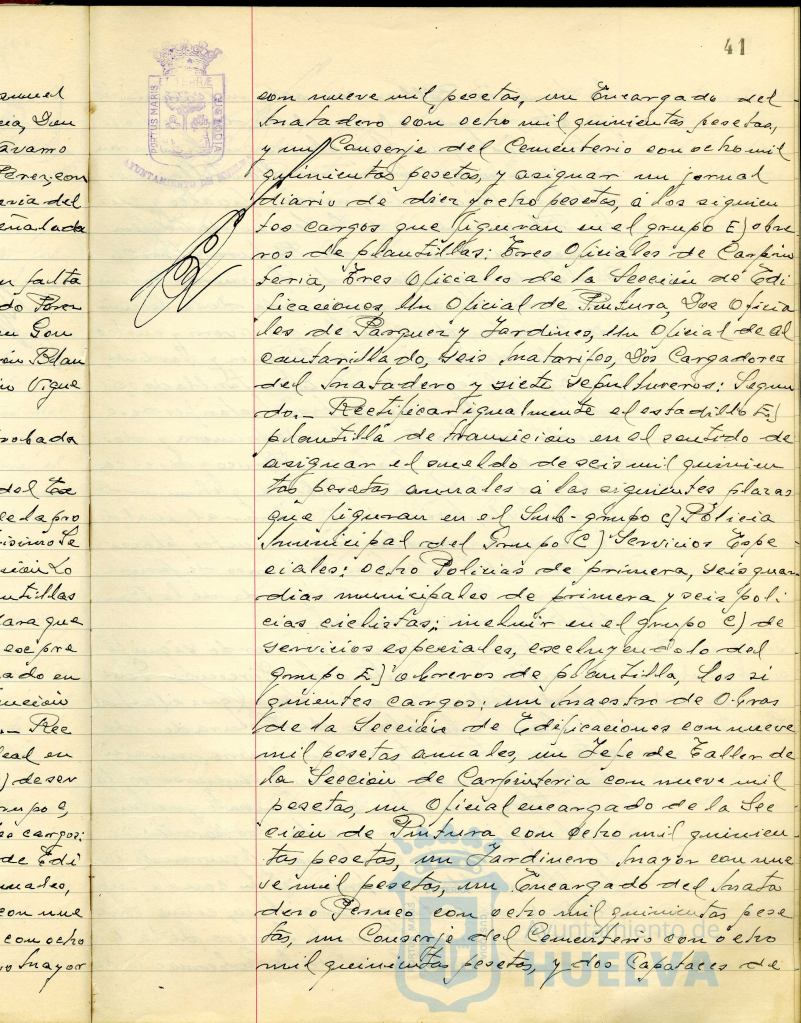 41
PORTUS MARIS ET TERRÆ CUSTODIA
AYUNTAMIENTO DE HUELVA
con nueve mil pesetas, un Encargado del
Matadero con ocho mil quinientas pesetas,
y un Conserje del Cementerio con ocho mil
quinientas pesetas, y asignar un jornal
diario de diez y ocho pesetas, á los siguien
tes cargos que figuran en el grupo E) obre
ros de plantillas: Tres Oficiales de Carpin
teria, Tres Oficiales de la Sección de Edi
ficaciones, Un Oficial de Pintura, Dos Oficia
les de Parques y Jardines, Un Oficial de al
cantarillado, seis Matarifes, Dos Cargadores
del Matadero y siete sepultureros: Segun
do.- Rectificar igualmente el estadillo E)
plantilla de transición en el sentido de
asignar el sueldo de seis mil quinien
tas pesetas anuales á las siguientes plazas
que figuran en el Sub-grupo c) Policia
Municipal del Grupo C) Servicios Espe
ciales: ocho Policias de primera, seis guar
dias municipales de primera y seis poli
cias ciclistas; incluir en el grupo C) de
servicios especiales, excluyendolo del
grupo E) obreros de plantilla, los si
guientes cargos: un Maestro de Obras
de la Sección de Edificaciones con nueve
mil pesetas anuales, un Jefe de Taller de
la Sección de Carpinteria con nueve mil
pesetas, un Oficial encargado de la Sec
ción de Pintura con ocho mil quinien
tas pesetas, un Jardinero Mayor con nue
ve mil pesetas, un Encargado del Mata
dero Perneo con ocho mil quinientas pese
tas, un Conserje del Cementerio con ocho
mil quinientas pesetas, y dos Capataces de
Ayuntamiento de
HUELVA